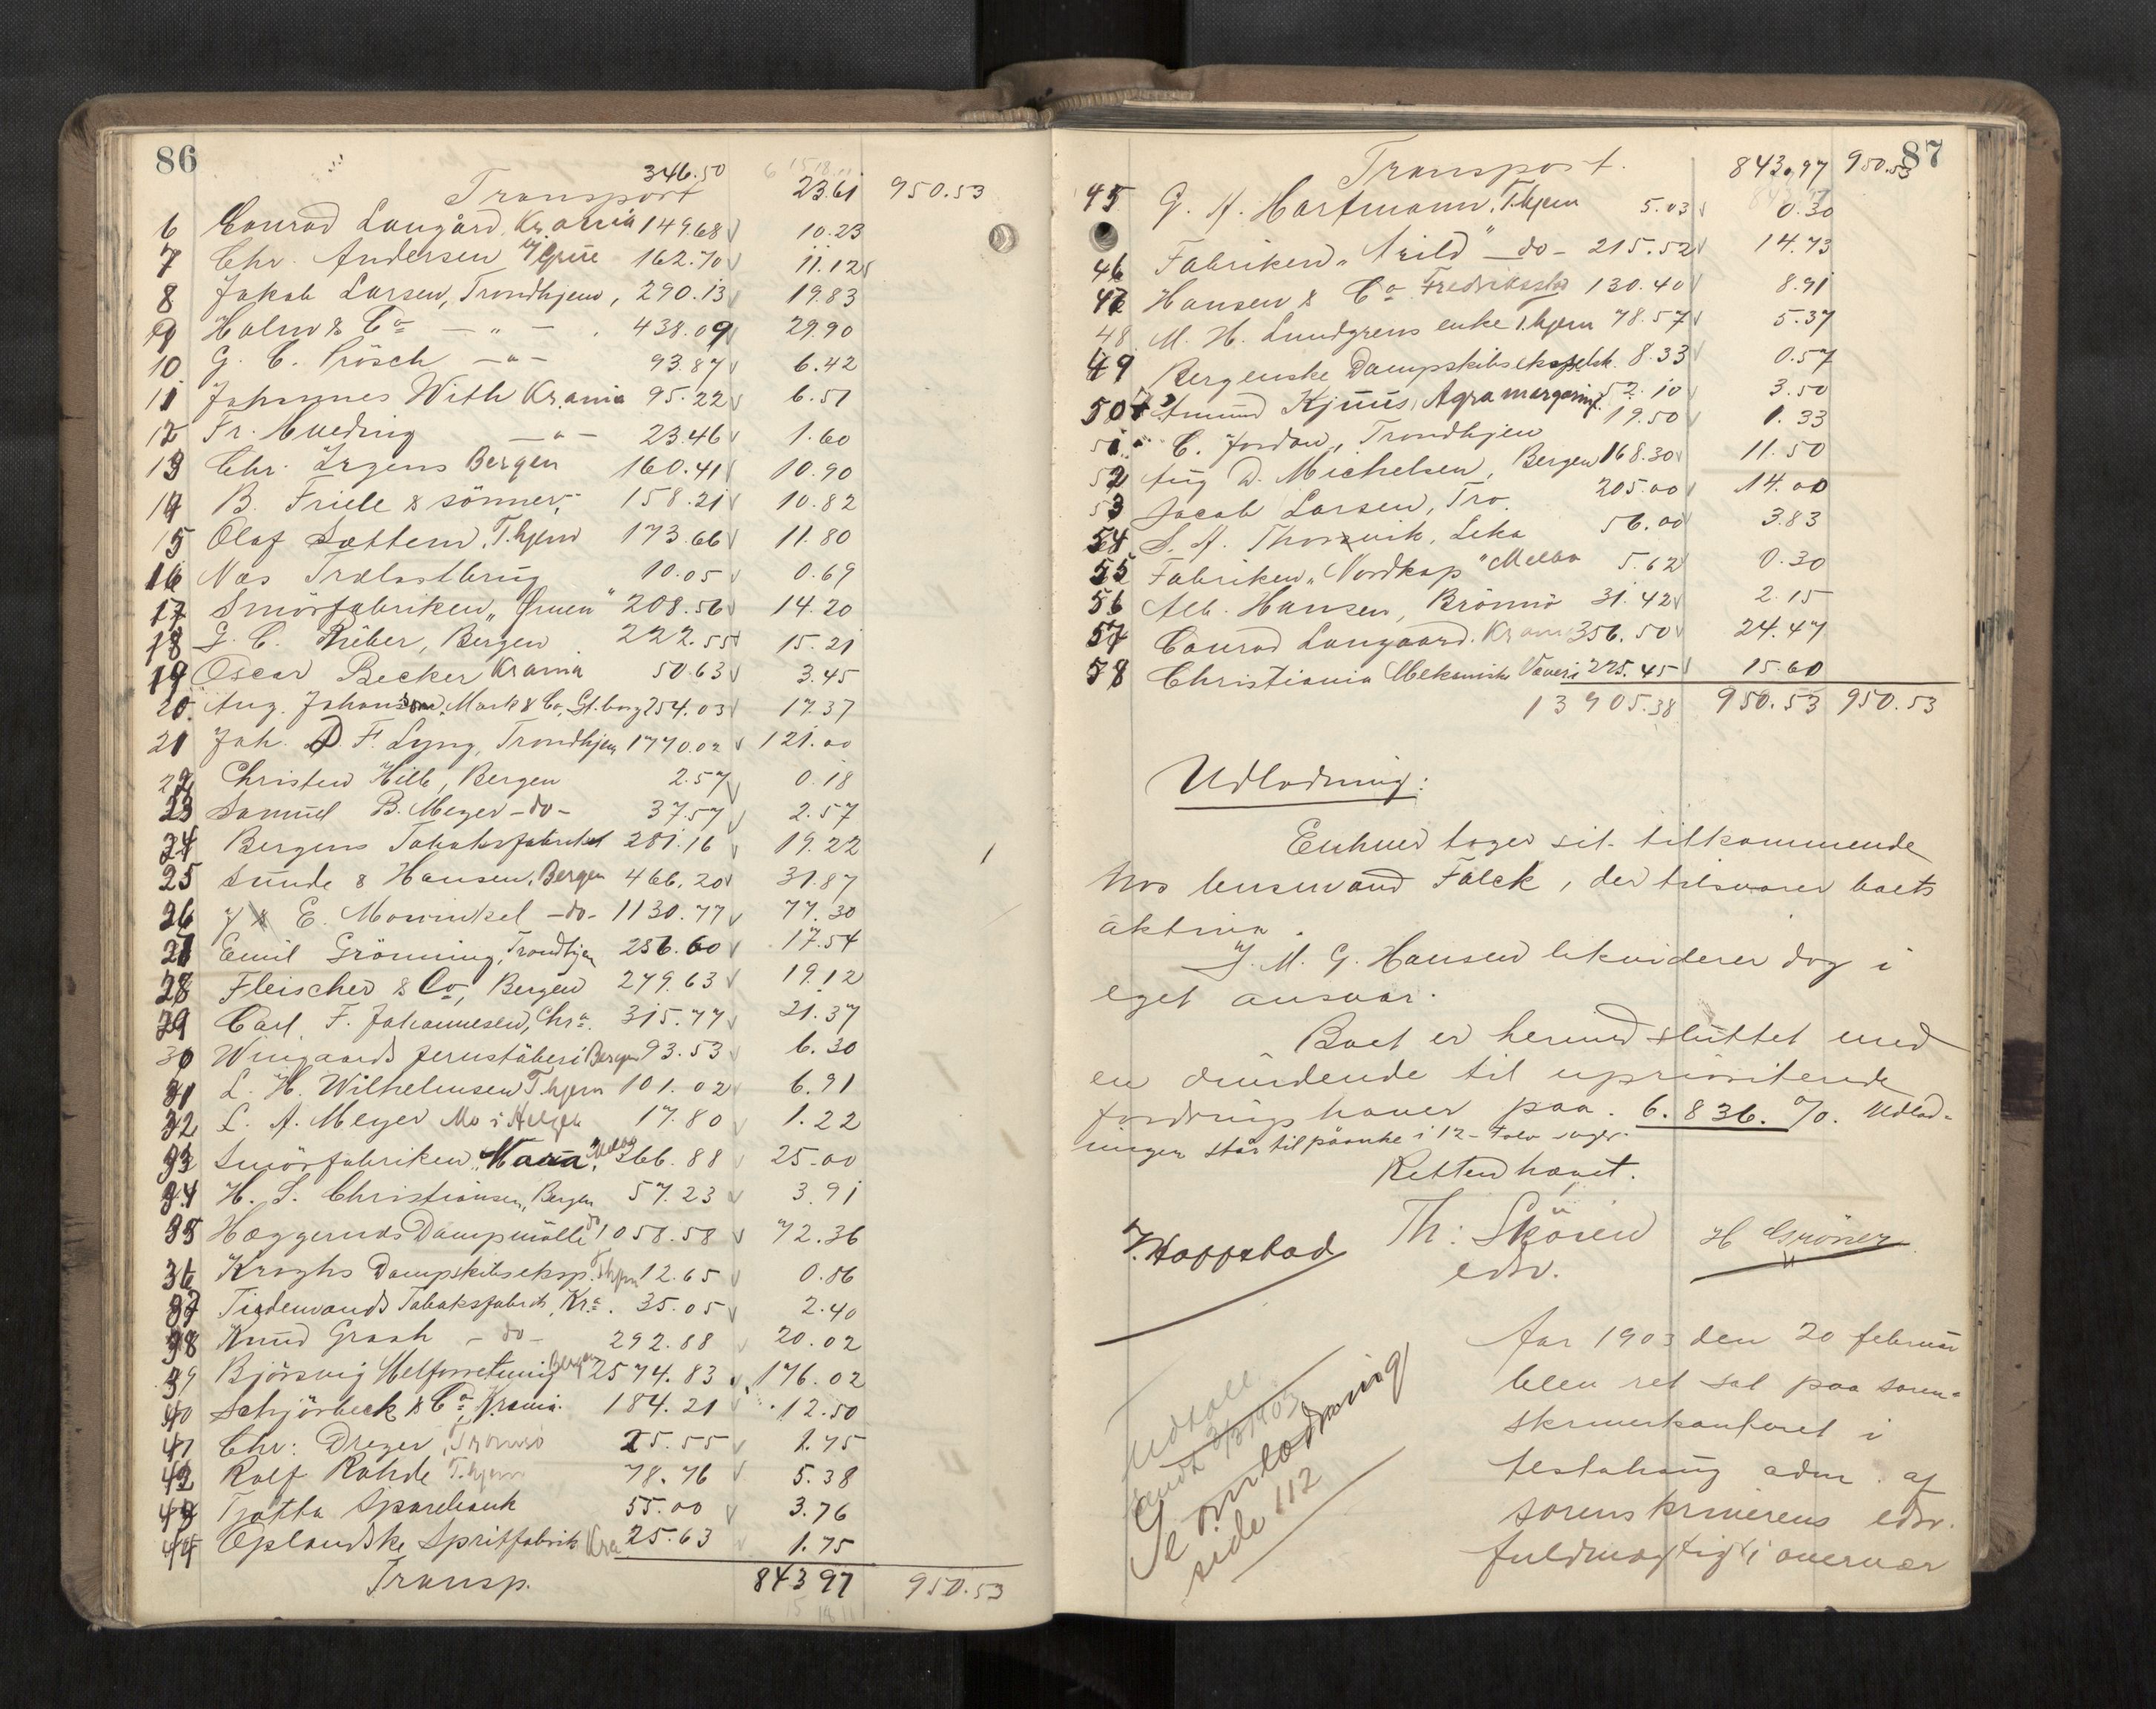 86
346.50
Transport 23.61 950.53
6 Conrad Langård, Kr.ania 149.68 10.23
7 Chr. Andersen 162.70 11.12
8 Jakob Larsen, Trondhjem, 290.13 19.83
9 Holm & Co — " — 438.09 29.90
10 G. C. Prösch — " — 93.87 6.42
11 Johannes With Kr.ania 95.22 6.51
12 Fr. Mueding — " — 23.46 1.60
13 Chr. Irgens Bergen 160.41 10.90
14 B. Friele & sönner, 158.21 10.82
15 Olaf Sættem, T.hjem 173.66 11.80
16 Nes Trælastbrug 10.05 0.69
17 Smörfabriken „Örnen" 208.56 14.20
18 G. C. Rieber, Bergen 222.55 15.21
19 Oscar Becker Krania 50.63 3.45
20. Aug. Johansson, Mark & Co, Gt.borg 254.03 17.37
21 Joh. D. F. Lyng, Trondhjem 1770.02 121.00
22 Christen Hille, Bergen 2.57 0.18
23 Samuel B. Meyer - do - 37.57 2.57
24 Bergens Tobaksfabrikk 281.16 19.22
25 Sunde & Hansen, Bergen 466.20 31.87
26 J & E. Mowinkel - do - 1130.77 77.30
27 Emil Grönning, Trondhjem 256.60 17.54
28 Fleischer & Co, Bergen 279.63 19.12
29 Carl F. Johannesen, Chra. 315.77 21.37
30 Wingaards Jernstöberi Bergen 93.53 6.30
31 L. H. Wilhelmsen T.hjem 101.02 6.91
32 L. A. Meyer Mo i Helgel. 17.80 1.22
33 Smörfabriken „Nora", Melbo 366.88 25.00
34 H. S. Christiansen, Bergen 57.23 3.91
35 Hæggernæs Dampmölle do 1058.58 72.36
36 Kroghs Dampskibseksp. T.hjem 12.65 0.86
37 Tiedemands Tobaksfabrik, Kr.a. 35.05 2.40
38 Knud Graah - do - 292.88 20.02
39 Björsvig Melforretning Bergen 2574.83 176.02
40 Schjörbeck & Co, Krania. 184.21 12.50
41 Chr: Dreyer, Tromsö 25.55 1.75
42 Rolf Rohde T.hjem 78.76 5.38
43 Tjøtta Sparebank 55.00 3.76
44 Oplandske Spritfabrik Kra 25.63 1.75
Transp. 843 97 950.53
87
Transport. 843.97 950.53
45 G. A. Hartmann, T.hjem 5.03 0.30
46 Fabriken „Arild" — do - 215.52 14.73
47 Hansen & Co Fredriksstad 130.40 8.91
48 M. H. Lundgrens enke T.hjem 78.57 5.37
49 Bergenske Dampskibsekspedit. 8.33 0.57
50 Amund Kjuus, Agra margarinf. 52.10 3.50
51 C. Jordan, Trondhjem 19.50 1.33
52 Aug D. Michelsen, Bergen 168.30 11.50
53 Jacob Larsen, Tro. 205.00 14.00
54 S. A. Thorsvik, Leka 56.00 3.83
55 Fabriken „Nordkap" Melbo 5.62 0.30
56 Alb. Hansen, Brönnö 31.42 2.15
57 Conrad Langaard. Krania 356.50 24.47
58 Christiania Mekaniske Væveri 225.45 15.60
13 905.38 950.53 950.53
Udlodning:
Enhver tager sit tilkommende
hos lensmand Falck, der tilsvarer boets
aktiva.
J. M. G. Hansen likviderer dog i
eget ansvar.
Boet er hermed sluttet med
en dividende til uprioriterede
fordringshaver paa. 6.836. %. Udlod-
ningen står til påanke i 12 - tolv uger.
Retten hævet.
T. Hoppstad Th: Skösien H Gröner
edsv.
Aar 1903 den 20 februar
blev ret sat paa soren-
skriverkontoret i
Alstahaug adm. af
sorenskriverens edsv.
fuldmægtig i overvær
Se omlodning
side 112